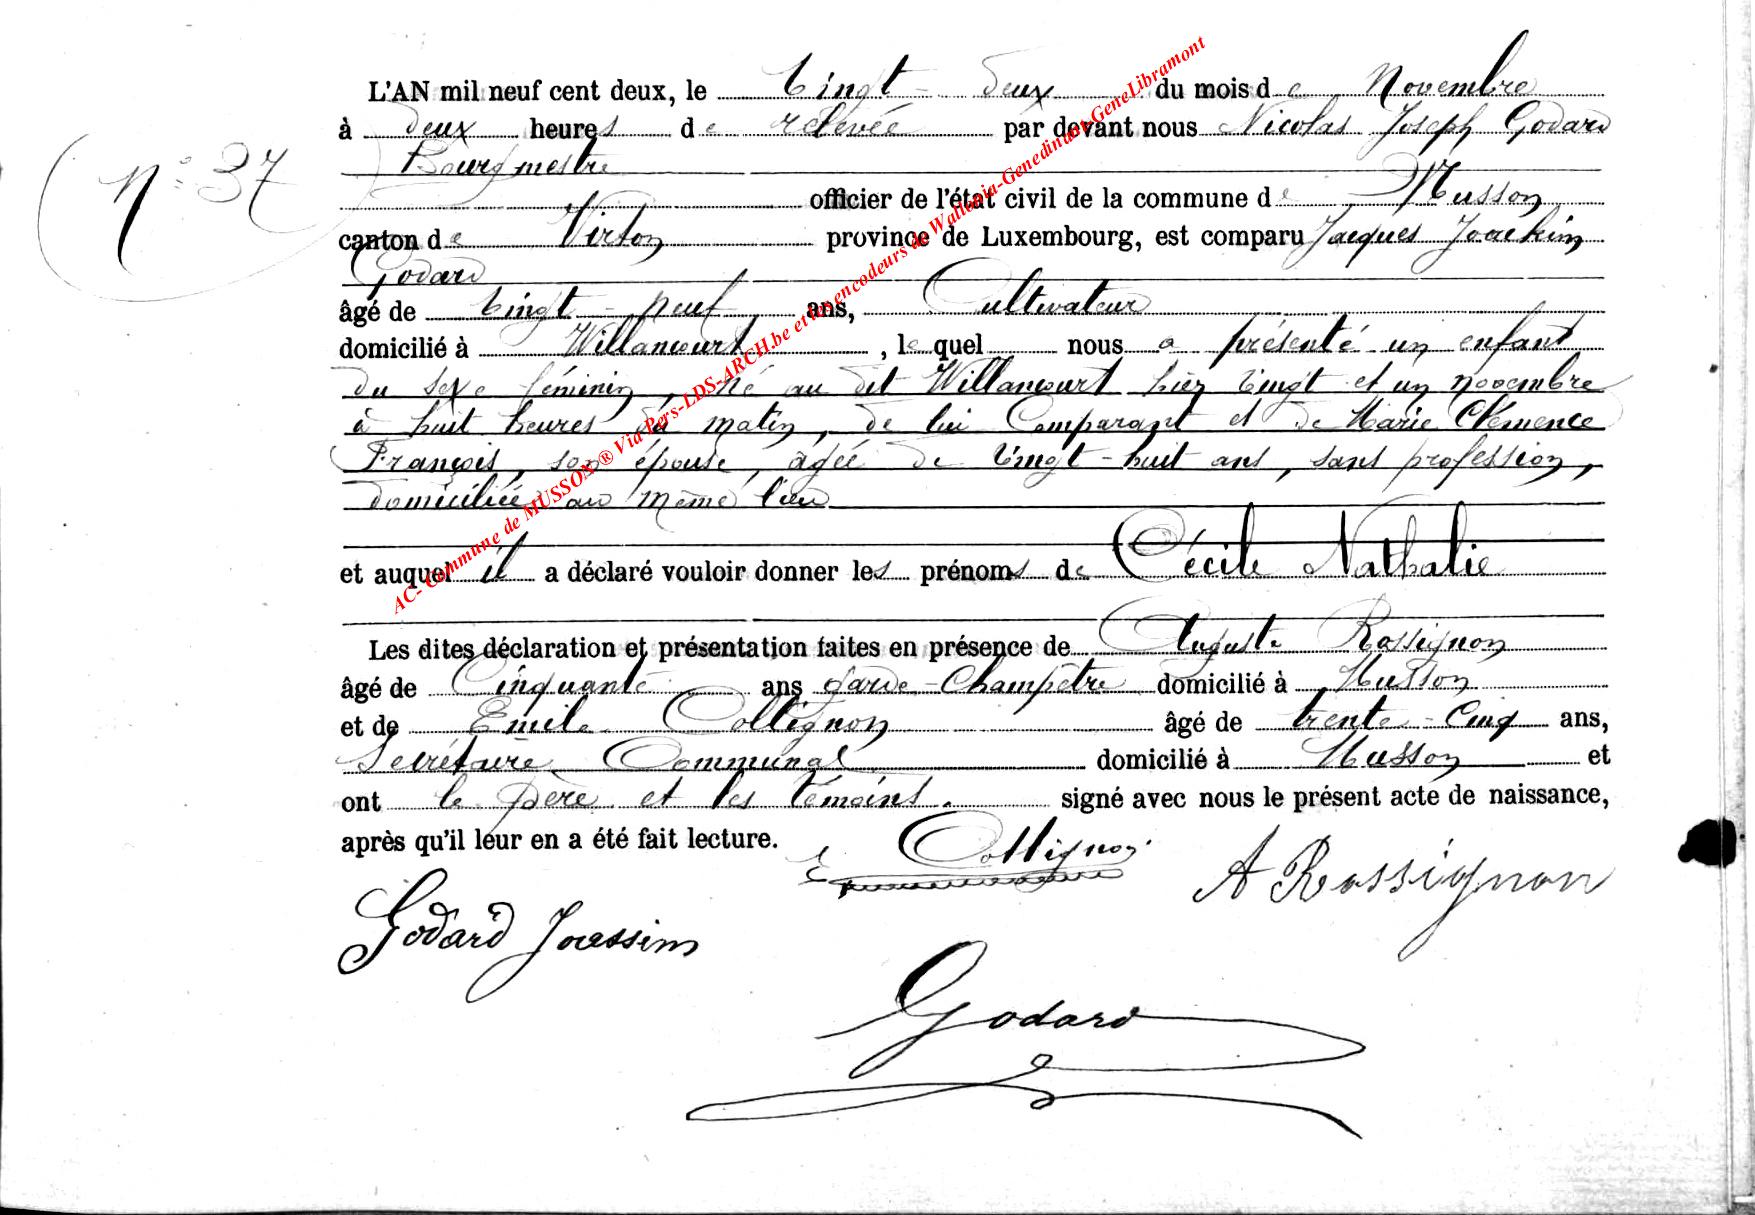 L'AN mil neuf cent deux, le vingt-deux du mois de Novembre
à deux heures de relevée par devant nous Nicolas Joseph Godard
N° 37
Bourgmestre
officier de l'état civil de la commune de Musson
canton de Virton province de Luxembourg, est comparu Jacques Joachim
Godard
âgé de vingt-neuf ans, Cultivateur
domicilié à Willancourt, lequel nous a présenté un enfant
du sexe féminin, né au dit Willancourt hier vingt et un novembre
à huit heures du matin, de lui Comparant et de Marie Clémence
François, son épouse, âgée de vingt-huit ans, sans profession,
domiciliée au même lieu
et auquel il a déclaré vouloir donner les prénoms de Cécile Nathalie
Les dites déclaration et présentation faites en présence de Auguste Rossignon
âgé de Cinquante ans garde-Champêtre domicilié à Musson
et de Emile Collignon âgé de trente-Cinq ans,
Secrétaire Communal domicilié à Musson et
ont le père et les témoins. signé avec nous le présent acte de naissance,
après qu'il leur en a été fait lecture.
E Collignon
A Rossignon
Godard Joassim
Godard
AC- Commune de MUSSON ® Via Pers-LDS-ARCH.be et les encodeurs de Wallonia-Genedinant-GeneLibramont